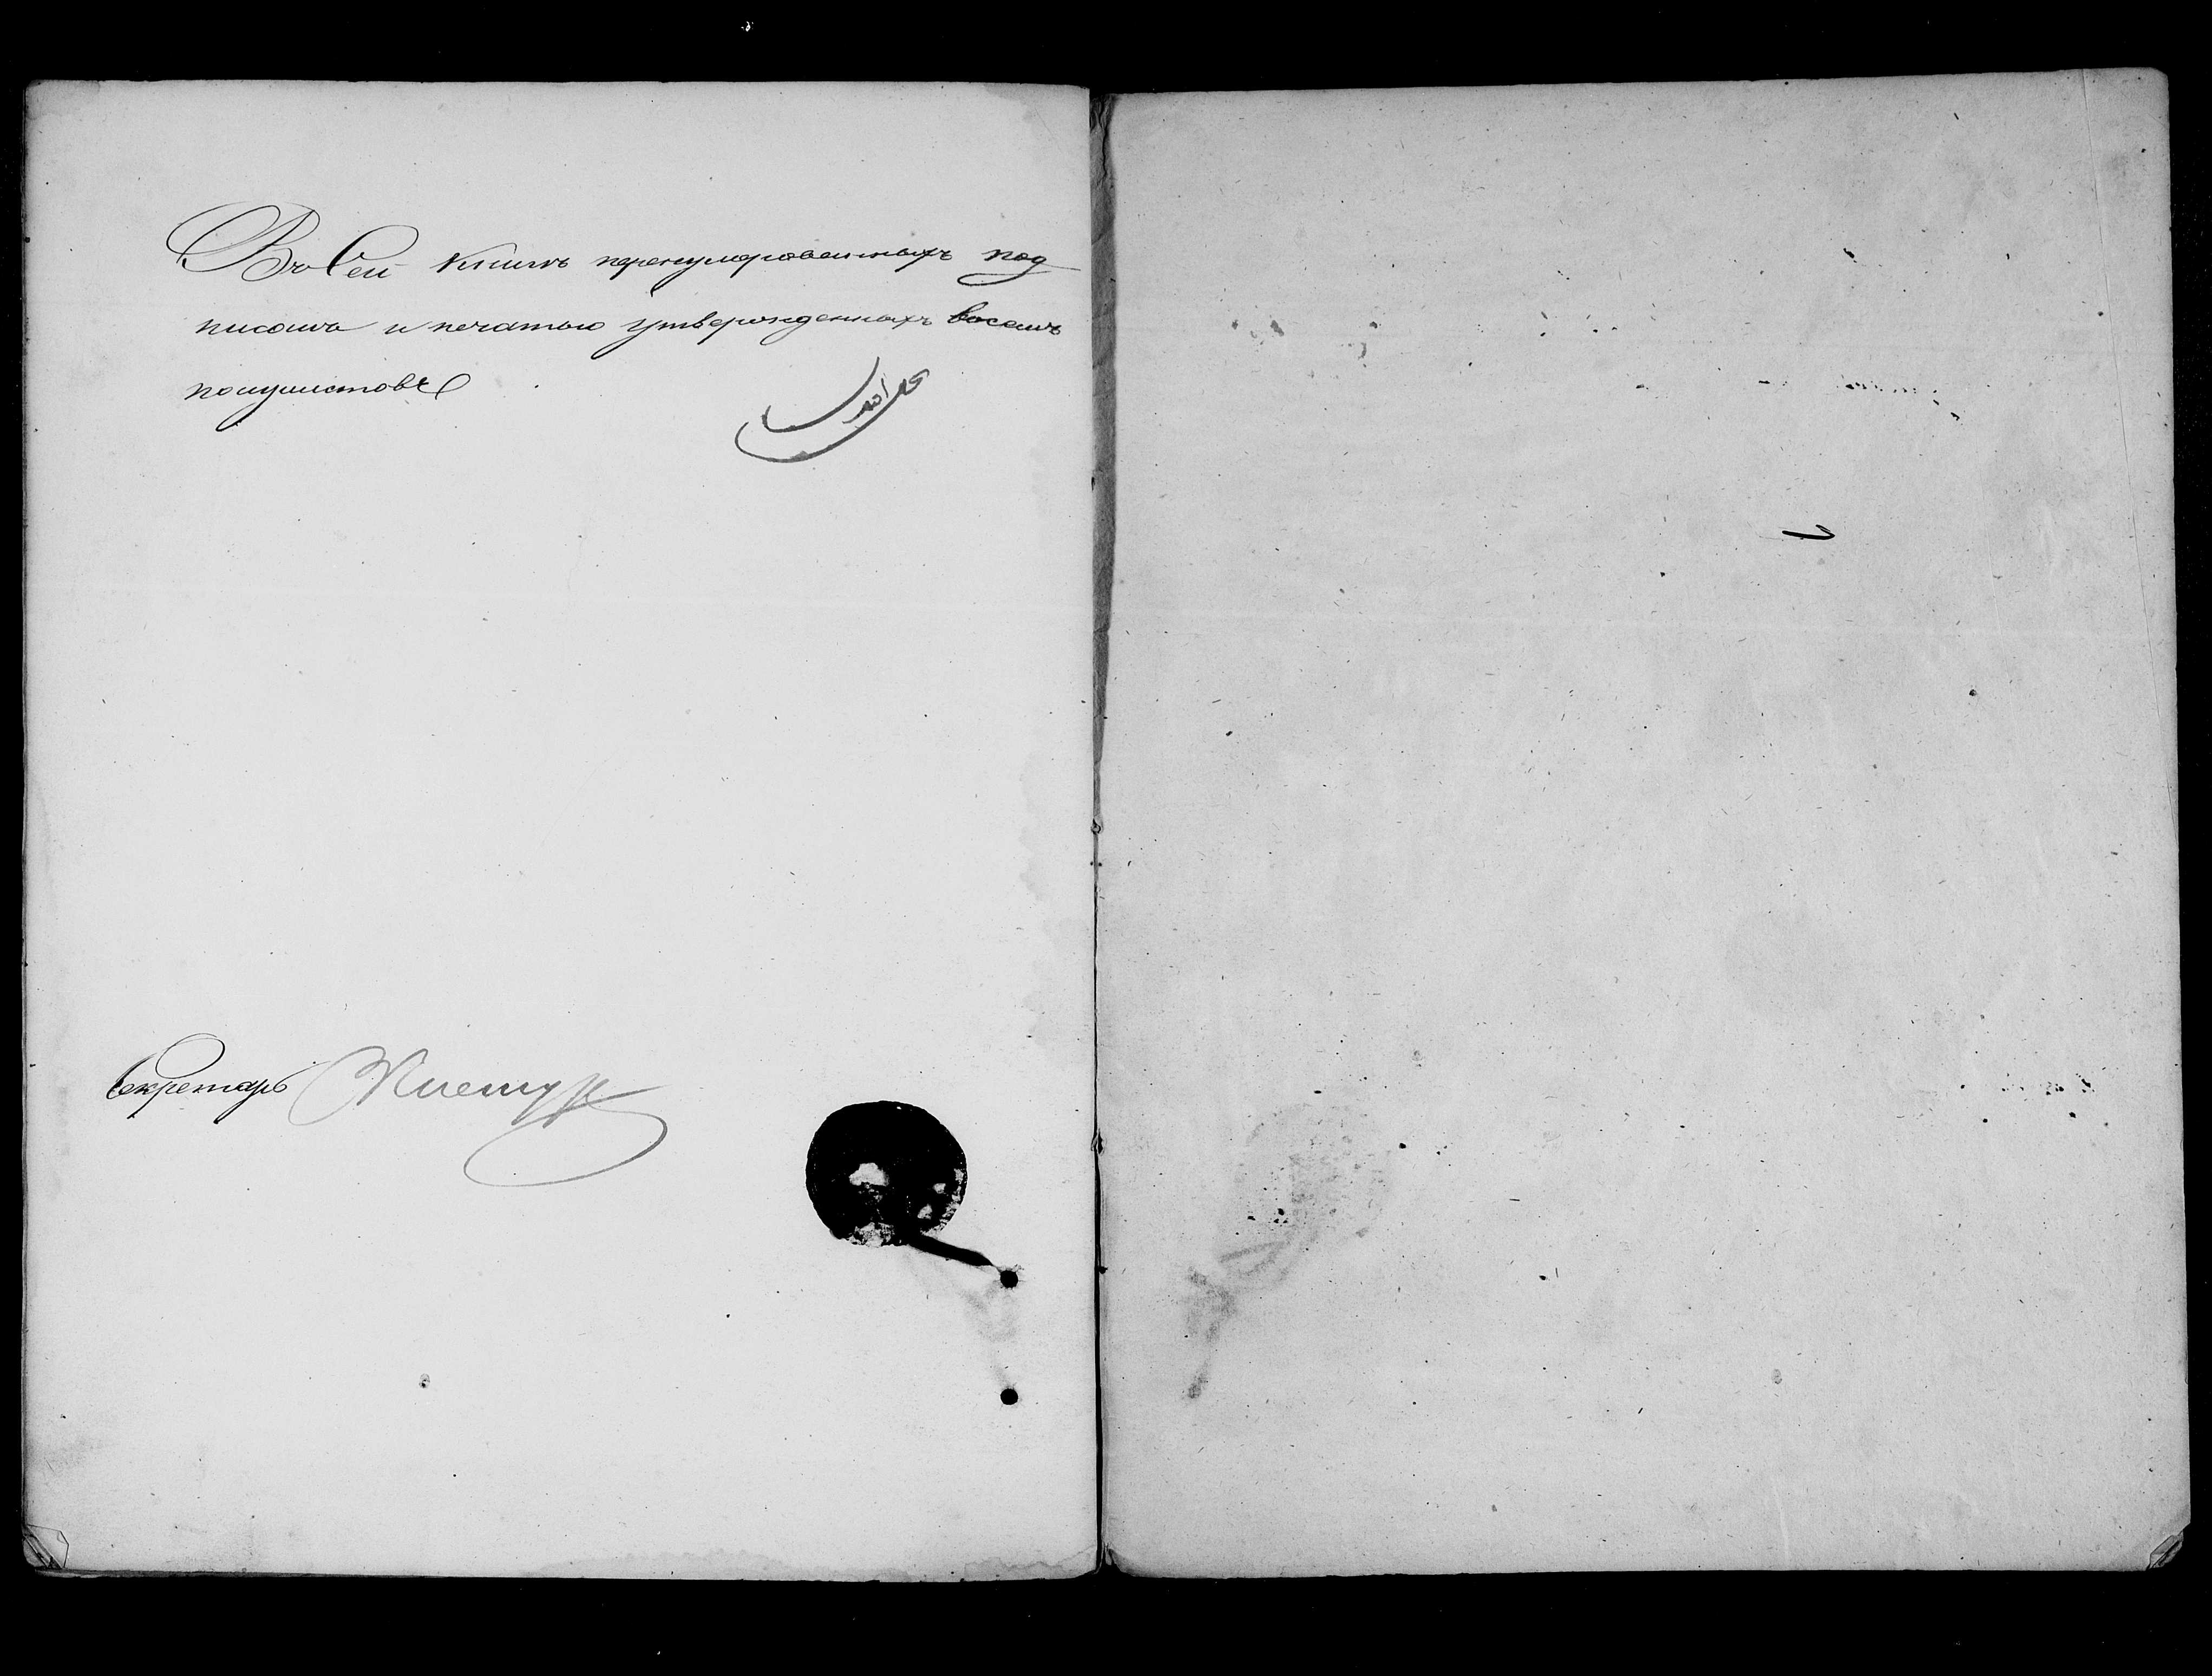 Въ Сей книгѣ перенумерованныхъ под
писомъ и печатью утвержденныхъ восемь
полулистовъ
Секретарь